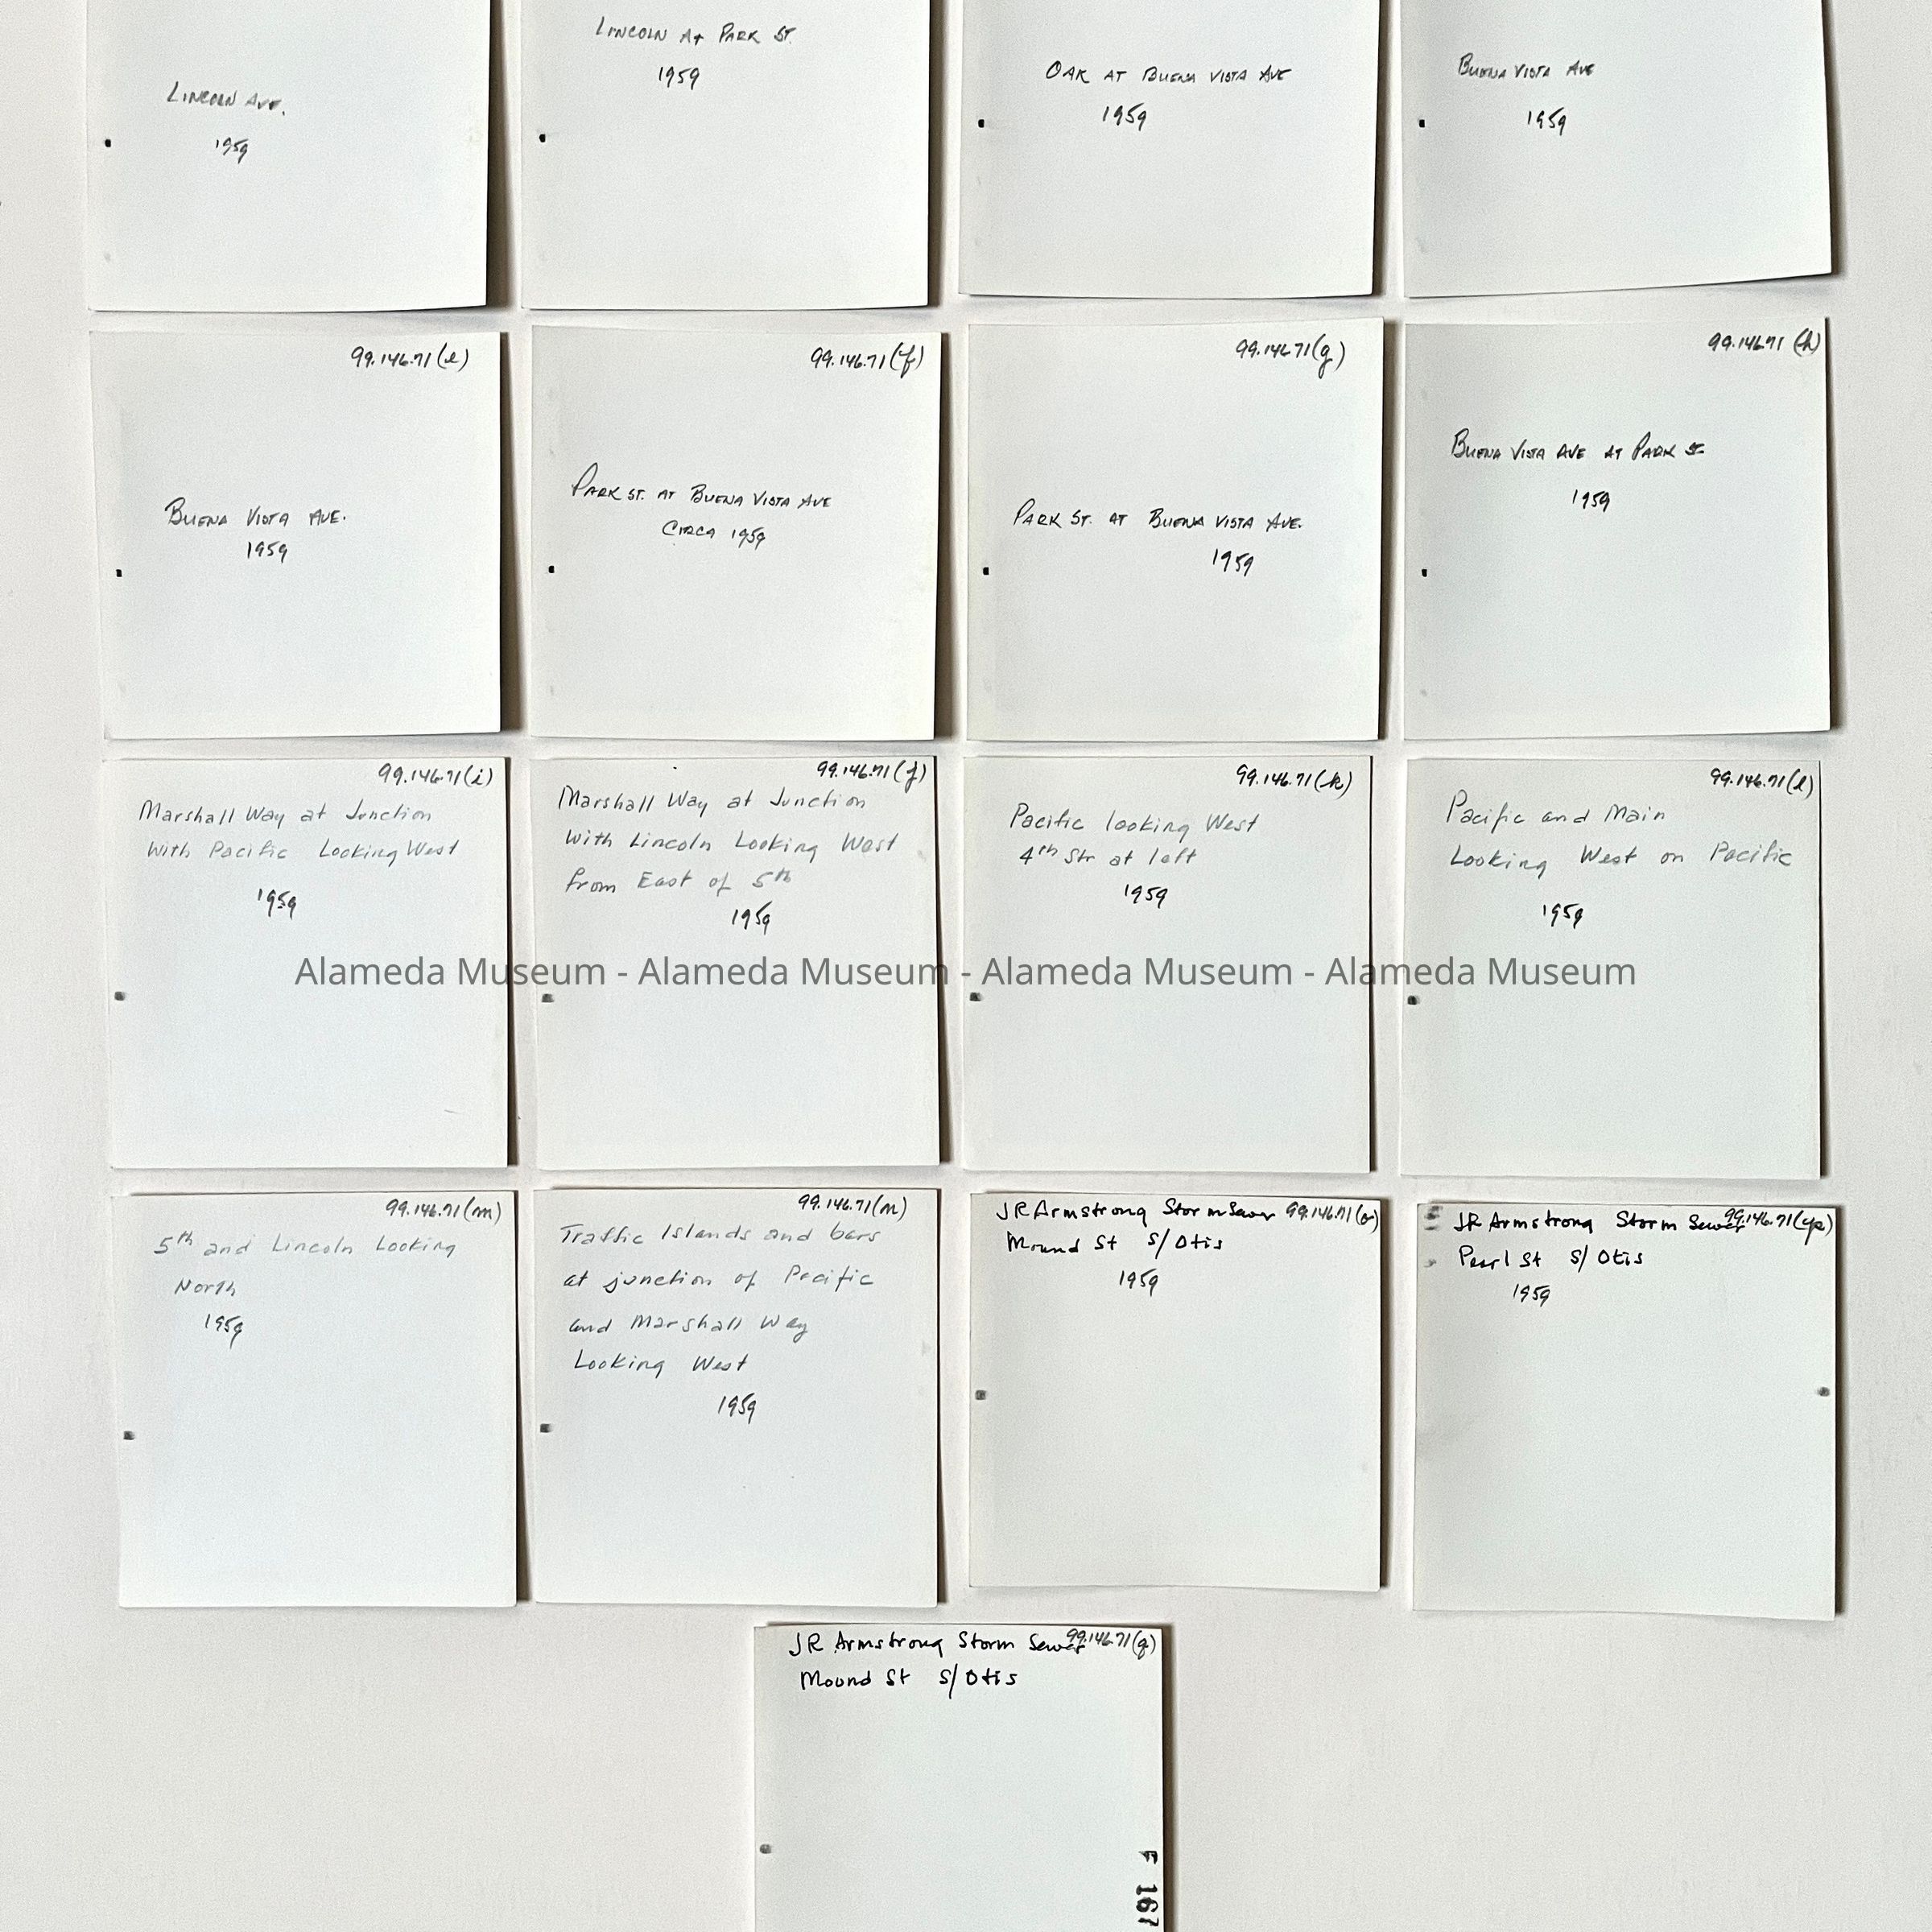 LINCOLN AVE.
1959
LINCOLN At PARK ST.
1959
OAK AT BUENA VISTA AVE
1959
BUENA VISTA AVE
1959
99.146.71(e)
BUENA VISTA AVE.
1959
99.146.71(f)
PARK ST. AT BUENA VISTA AVE
CIRCA 1959
99.146.71(g)
PARK ST. AT BUENA VISTA AVE.
1959
99.146.71(h)
BUENA VISTA AVE AT PARK ST
1959
99.146.71(i)
Marshall Way at Junction
With Pacific Looking West
1959
99.146.71(j)
Marshall Way at Junction
With Lincoln Looking West
from East of 5th
1959
99.146.71(k)
Pacific looking West
4th Str at left
1959
99.146.71(l)
Pacific and Main
Looking West on Pacific
1959
Alameda Museum - Alameda Museum - Alameda Museum - Alameda Museum
99.146.71(m)
5th and Lincoln Looking
North
1959
99.146.71(n)
Traffic Islands and bars
at junction of Pacific
and Marshall Way
Looking West
1959
JR Armstrong Storm Sewer 99.146.71(o)
Mound St S/Otis
1959
JR Armstrong Storm Sewer 99.146.71(p)
Pearl St S/Otis
1959
JR Armstrong Storm Sewer 99.146.71(q)
Mound St S/Otis
F 167